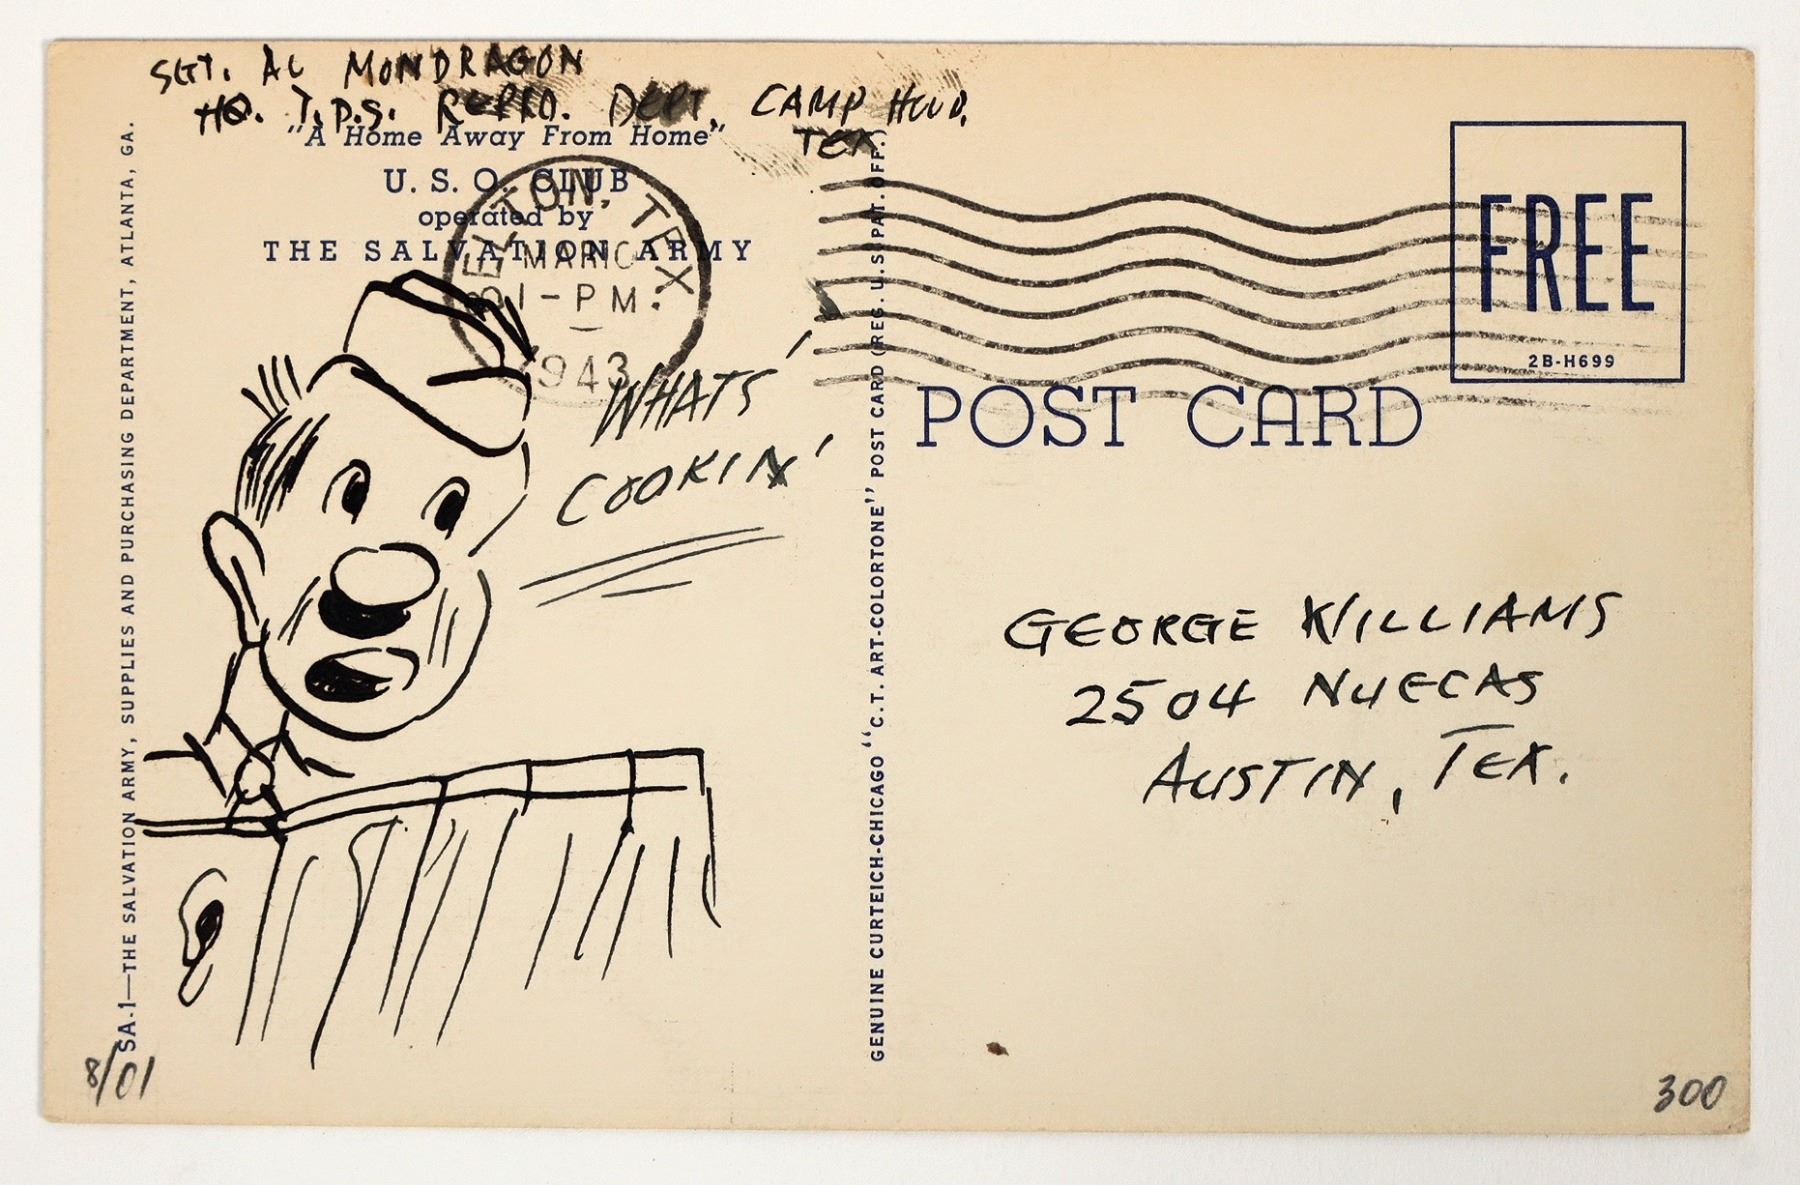 SGT. AL MONDRAGON
HQ. T.D.S. REPRO. DEPT, CAMP HOOD,
TEX
"A Home Away From Home"
U. S. O. CLUB
operated by
THE SALVATION ARMY
BELTON, TEX
MAR 10
1-PM.
1943
WHATS
COOKIN'
SA-1—THE SALVATION ARMY, SUPPLIES AND PURCHASING DEPARTMENT, ATLANTA, GA.
8/01
GENUINE CURTEICH-CHICAGO "C.T. ART-COLORTONE" POST CARD (REG. U.S. PAT. OFF.)
FREE
2B-H699
POST CARD
GEORGE WILLIAMS
2504 NUECAS
AUSTIN, TEX.
300